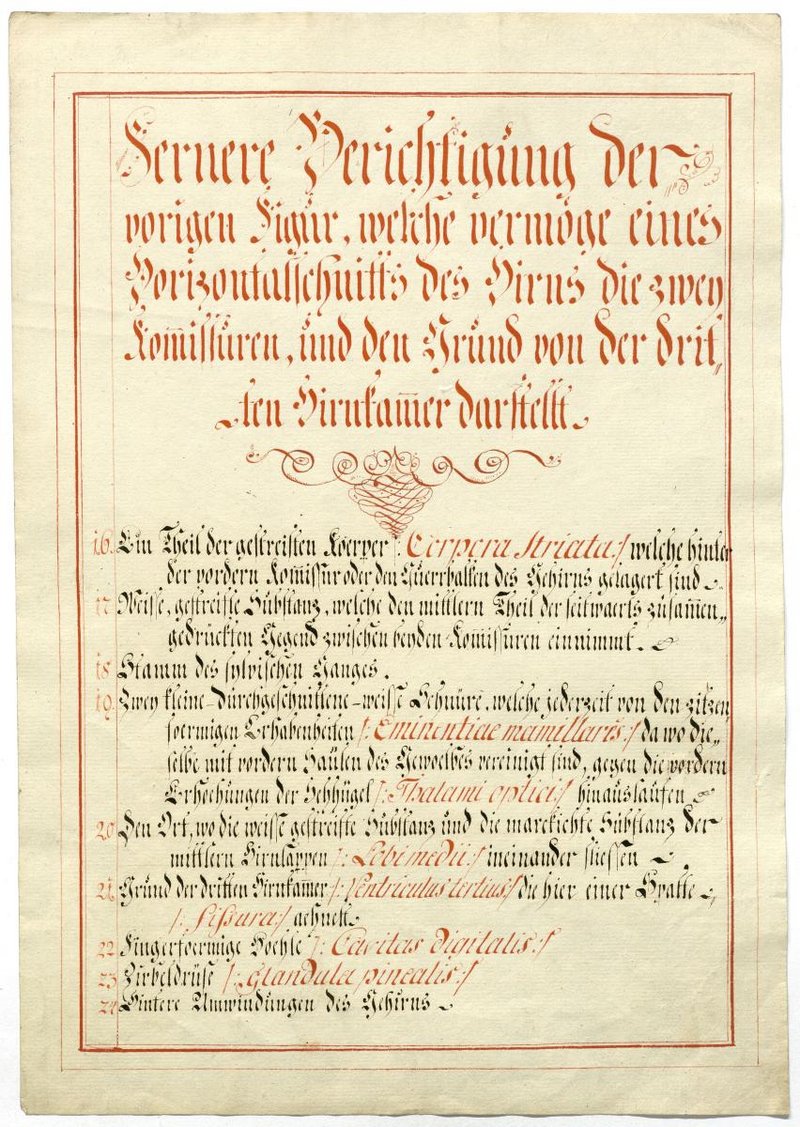 Fernere Berichtigung der
vorigen Figur, welche vermöge eines
Horizontalschnitts des Hirns die zwey
Kom̅issuren, und den Grund von der drit„
ten Hirnkam̅er darstellt.
16. Ein Theil der gestreiften Koerper /: Corpora Striata :/ welche hinter
der vordern Kom̅issur oder den Querrbalken des Gehirns gelagert sind.
17 Weisse, gestreifte Substanz, welche den mittlern Theil der seitwaerts zusam̅en„
gedruckten Gegend zwischen beyden Kom̅issuren einnimmt.
18 Stamm des sylvischen Ganges.
19. Zwey kleine durchgeschnittene weisse Schnüre, welche jederzeit von den zitzen
foermigen Erhabenheiten /: Eminentiae mamillaris :/ da wo die„
selbe mit vordern Säulen des Gewoelbes vereinigt sind, gegen die vordern
Erhoehungen der Sehhügel /: Thalami optici :/ hinauslaufen
20 Den Ort, wo die weisse gestreifte Substanz und die marckichte Substanz der
mittlern Hirnlappen /: Lobi medii :/ ineinander fliessen.
21 Grund der dritten Hirnkam̅er /: Ventriculus tertius :/ die hier einer Spalte
/: Fissura :/ aehnelt
22 Fingerfoermige Hoehle /: Cavitas digitalis :/
23 Zirbeldrüse /: Glandula pinealis :/
24 Hintere Umwindungen des Gehirns